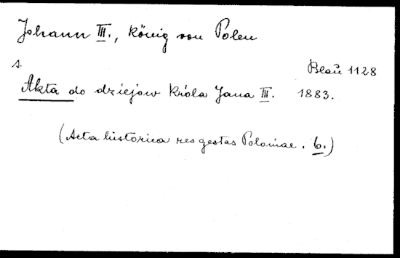 Johann III., König von Polen
s. Blau 1128
Akta do dziejów Króla Jana III. 1883.
(Acta historica res gestas Poloniae. 6.)